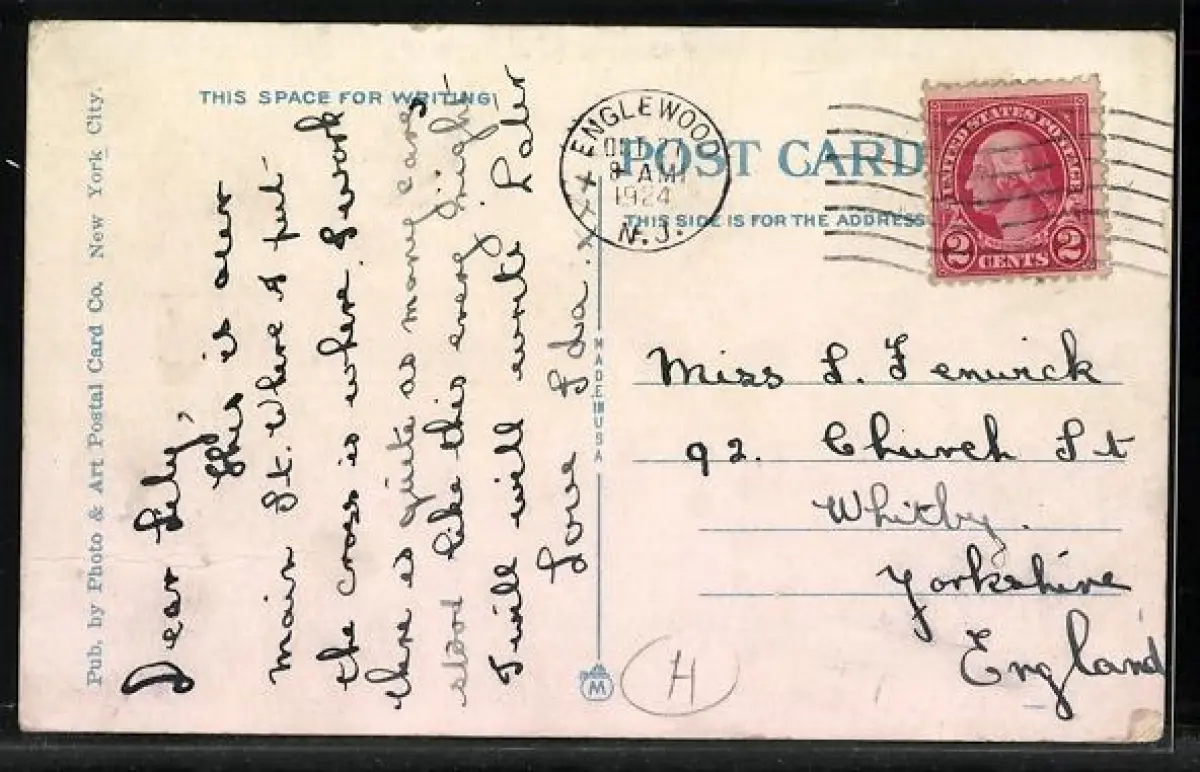 THIS SPACE FOR WRITING
POST CARD
THIS SIDE IS FOR THE ADDRESS
Pub. by Photo & Art Postal Card Co. New York City.
MADE IN USA
M
ENGLEWOOD
8 AM
1924
N.J.
UNITED STATES POSTAGE
2 CENTS 2
Dear Lily,
This is our
main St. Where I put
the cross is where I work
there is quite as many cars
stood like this every night
I will write Later
Love Ida. xxx
Miss L. Fenwick
92. Church St
Whitby.
Yorkshire
England
H